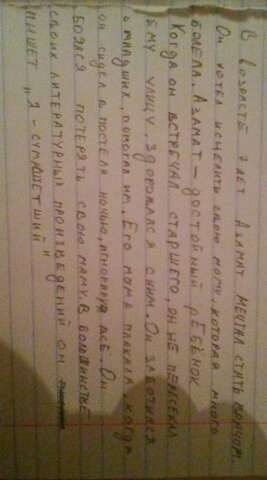 В возрасте 7 лет Азамат мечтал стать врачом.
Он хотел исцелить свою маму, которая много
болела. Азамат – достойный ребёнок
Когда он встречал старшего, он не пересекал
ему улицу, здоровался с ним. Он заботился
о младших, помогал им. Его мама плакала, когда
он сидел в постели ночью, игнорируя всё. Он
боялся потерять свою маму. В большинстве
своих литературных произведений он
пишет „я – сумашетший"